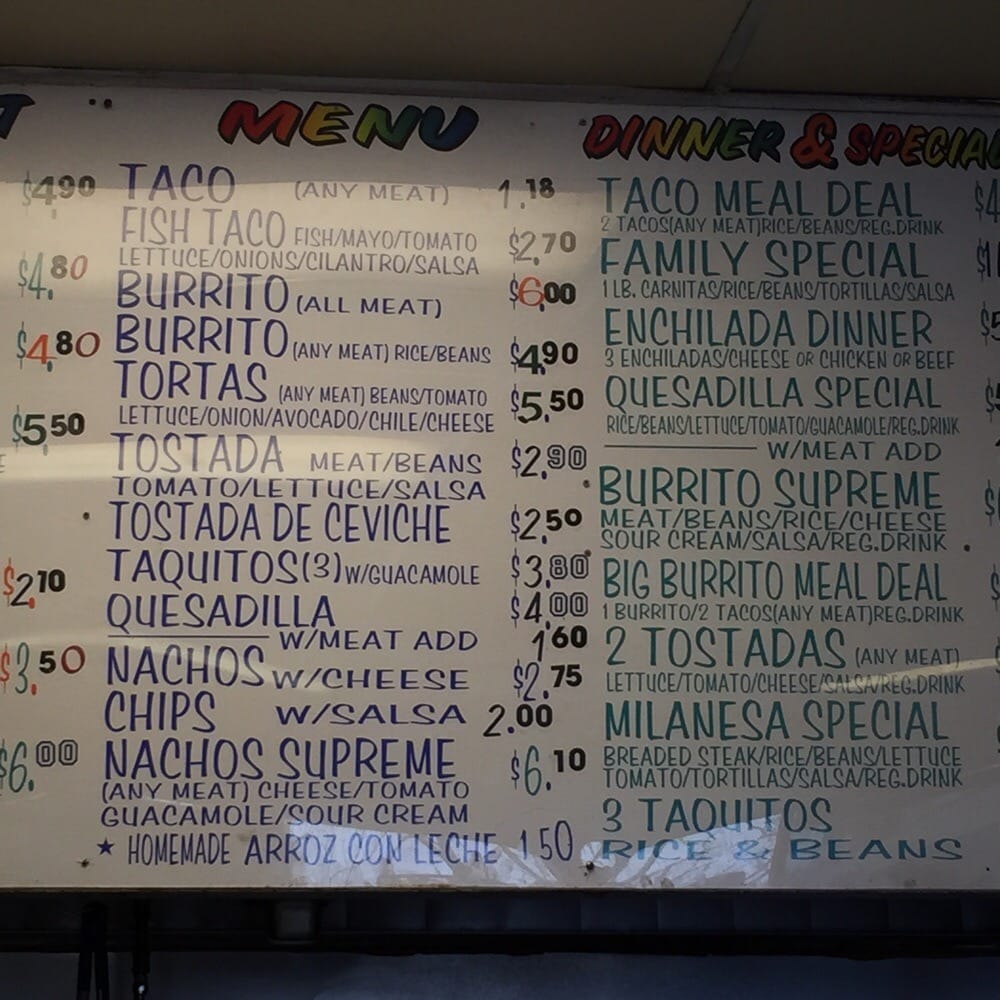 $4.90
$4.80
$4.80
$5.50
$2.10
$3.50
$6.00
MENU
TACO (ANY MEAT) 1.18
FISH TACO FISH/MAYO/TOMATO $2.70
LETTUCE/ONIONS/CILANTRO/SALSA
BURRITO (ALL MEAT) $6.00
BURRITO (ANY MEAT) RICE/BEANS $4.90
TORTAS (ANY MEAT) BEANS/TOMATO $5.50
LETTUCE/ONION/AVOCADO/CHILE/CHEESE
TOSTADA MEAT/BEANS $2.90
TOMATO/LETTUCE/SALSA
TOSTADA DE CEVICHE $2.50
TAQUITOS(3) W/GUACAMOLE $3.80
QUESADILLA $4.00
W/MEAT ADD 1.60
NACHOS W/CHEESE $2.75
CHIPS W/SALSA 2.00
NACHOS SUPREME $6.10
(ANY MEAT) CHEESE/TOMATO
GUACAMOLE/SOUR CREAM
★ HOMEMADE ARROZ CON LECHE 1.50
DINNER & SPECIAL
TACO MEAL DEAL $4
2 TACOS(ANY MEAT)RICE/BEANS/REG.DRINK
FAMILY SPECIAL
1 LB. CARNITAS/RICE/BEANS/TORTILLAS/SALSA
ENCHILADA DINNER
3 ENCHILADAS/CHEESE OR CHICKEN OR BEEF
QUESADILLA SPECIAL
RICE/BEANS/LETTUCE/TOMATO/GUACAMOLE/REG.DRINK
W/MEAT ADD
BURRITO SUPREME
MEAT/BEANS/RICE/CHEESE
SOUR CREAM/SALSA/REG.DRINK
BIG BURRITO MEAL DEAL
1 BURRITO/2 TACOS(ANY MEAT)REG.DRINK
2 TOSTADAS (ANY MEAT)
LETTUCE/TOMATO/CHEESE/SALSA/REG.DRINK
MILANESA SPECIAL
BREADED STEAK/RICE/BEANS/LETTUCE
TOMATO/TORTILLAS/SALSA/REG.DRINK
3 TAQUITOS
RICE & BEANS